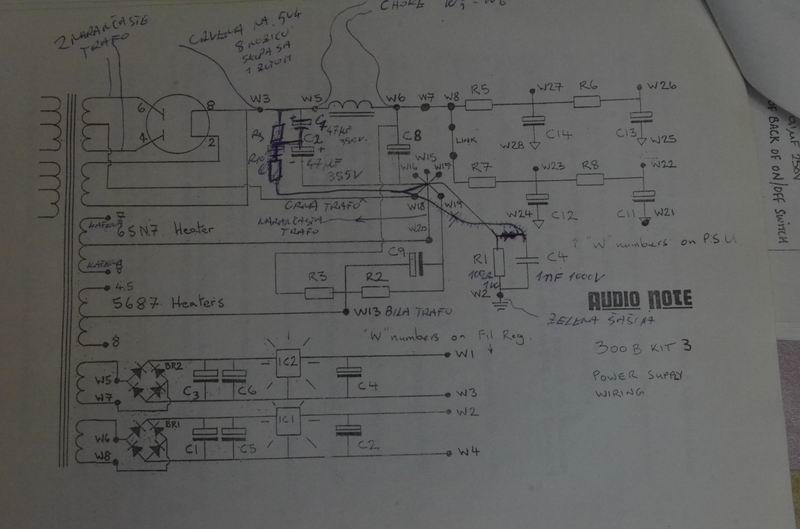 2 NARANČASTE
TRAFO
CRVENA NA 5U4
8 NOŽICU
1 ŽUTOM
CHOKE
W3
W5
W6
W7
W8
R5
W27
R6
W26
6
8
4
2
C2
47µF
350V.
47µF
355V
C8
W28
C14
C13
W25
LINK
W15
W16
R7
W23
R8
W22
CRNA TRAFO
W18
W19
W24
C12
C11
W21
NARANČASTA
TRAFO
W20
7
6SN7 Heater
8
C9
R1
C4
1nF 1000V
"W" numbers on P.S.U
R3
R2
W2
4.5
5687 Heaters
8
W13 BILA TRAFO
AUDIO NOTE
ZELENA ŠASIJA
"W" numbers on Fil Reg.
300B KIT 3
POWER SUPPLY
WIRING
W5
W7
BR2
C3
C6
IC2
C4
W1
W3
W6
W8
BR1
C1
C5
IC1
C2
W2
W4
OF BACK OF ON/OFF SWITCH